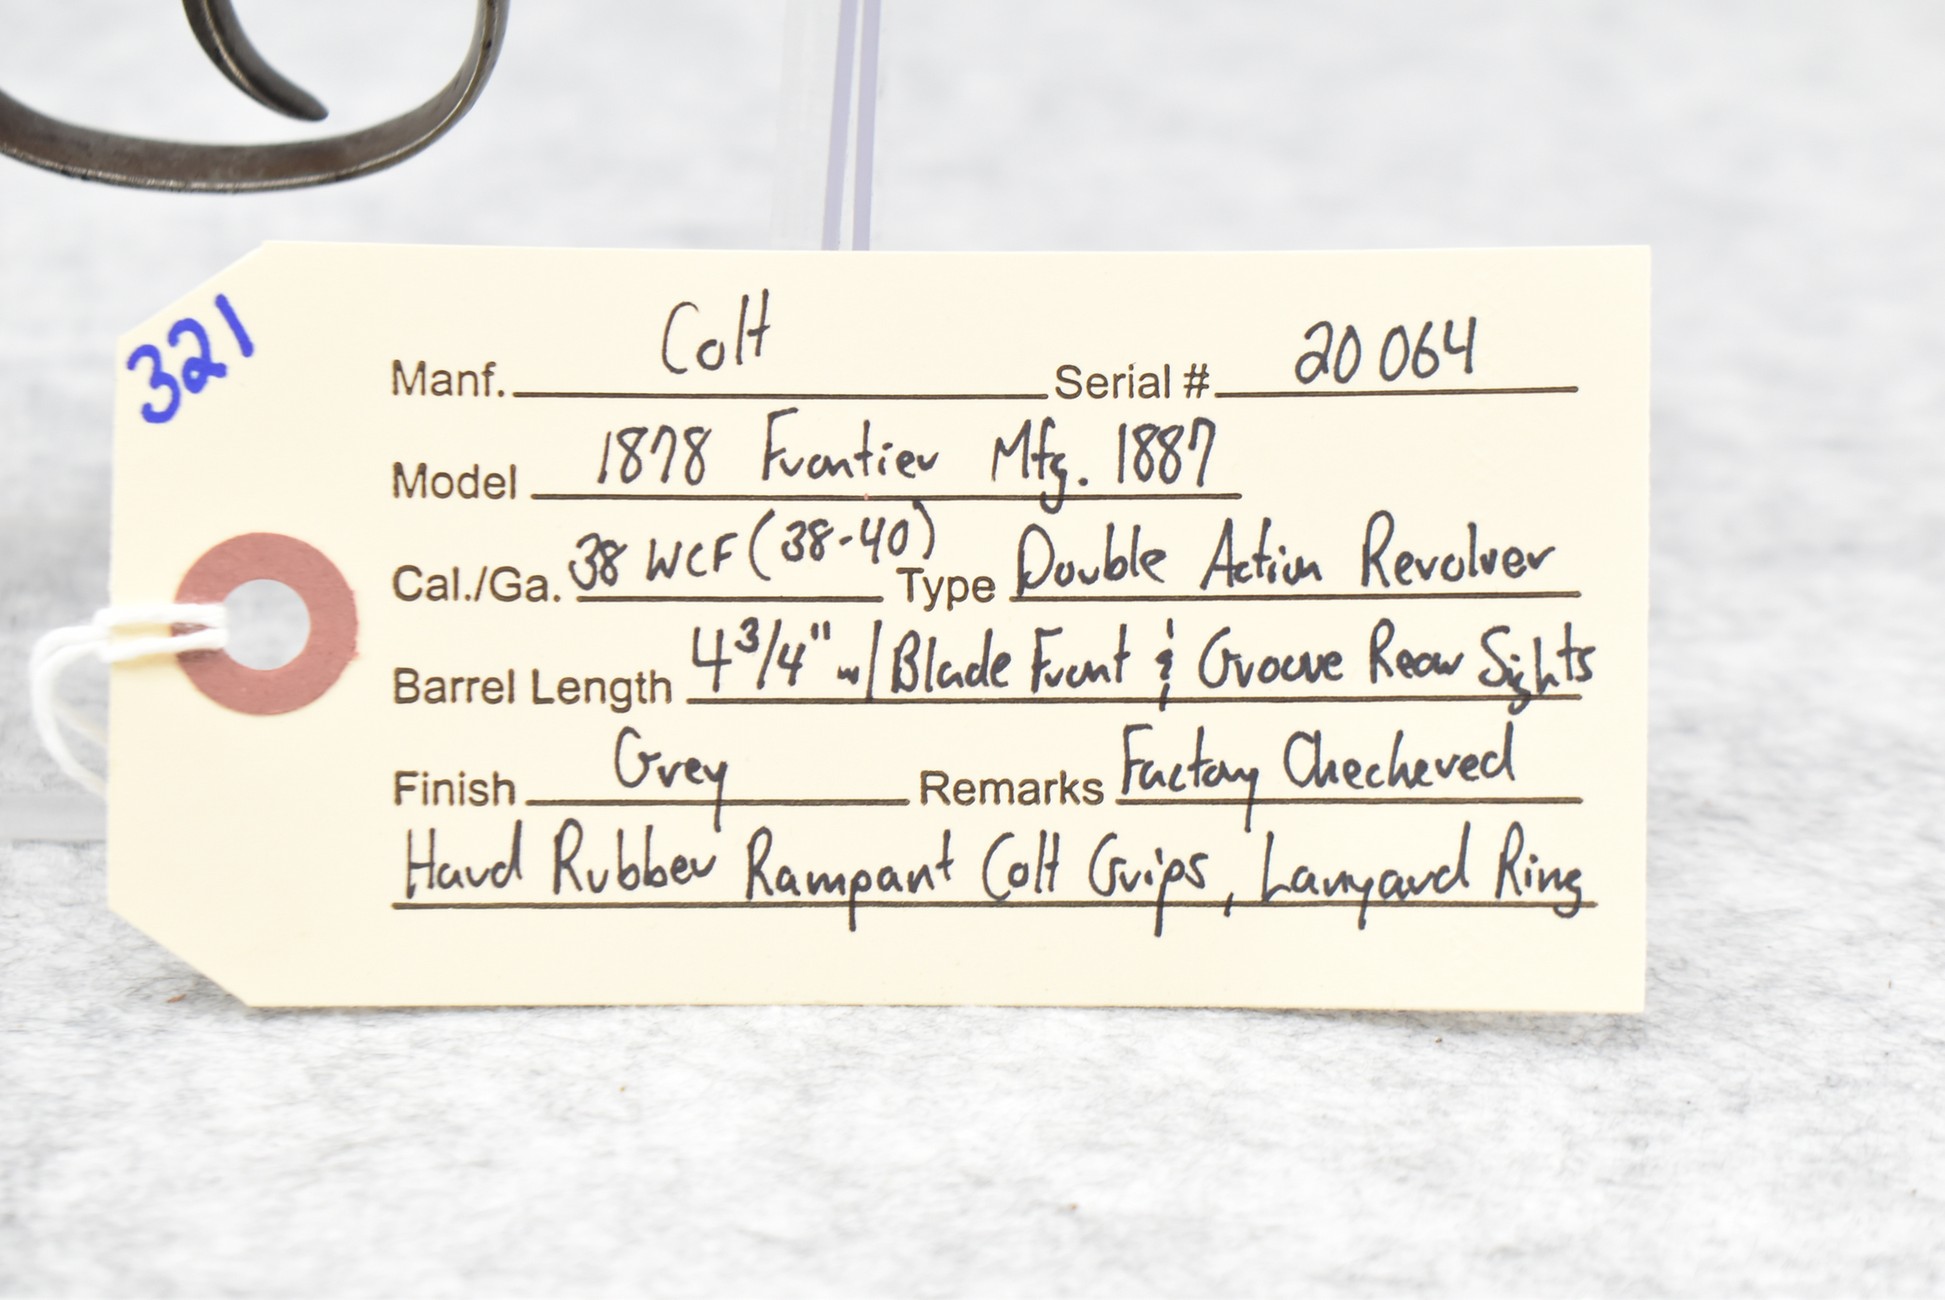 321
Manf. Colt Serial # 20064
Model 1878 Frontier Mfg. 1887
Cal./Ga. 38 WCF (38-40) Type Double Action Revolver
Barrel Length 4 3/4" w/ Blade Front & Groove Rear Sights
Finish Grey Remarks Factory Checkered
Hard Rubber Rampant Colt Grips, Lanyard Ring